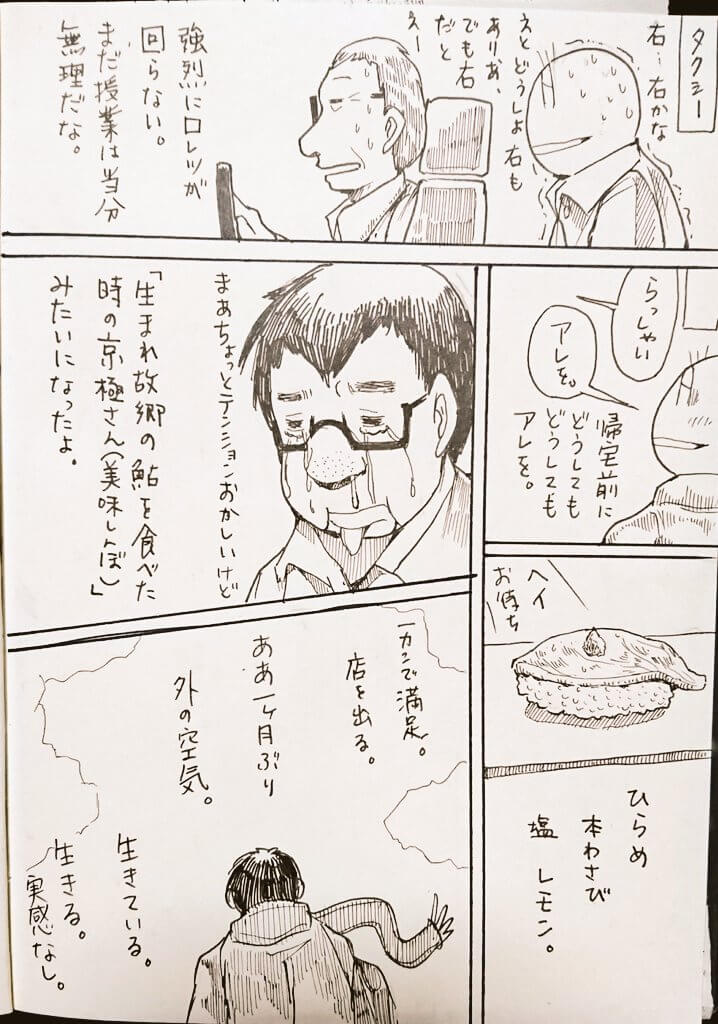 タクシー
右…右かな
えとどうしよ右も
ありあ、
でも右
だと
えー
強烈にロレツが
回らない。
まだ授業は当分
無理だな。
らっしゃい
アレを。
帰宅前に
どうしても
どうしても
アレを。
ヘイ
お待ち
ひらめ
本わさび
塩 レモン。
まあちょっとテンションおかしいけど
「生まれ故郷の鮎を食べた
時の京極さん(美味しんぼ)」
みたいになったよ。
一カンで満足。
店を出る。
ああ一ヶ月ぶり
外の空気。
生きている。
生きる。
実感なし。